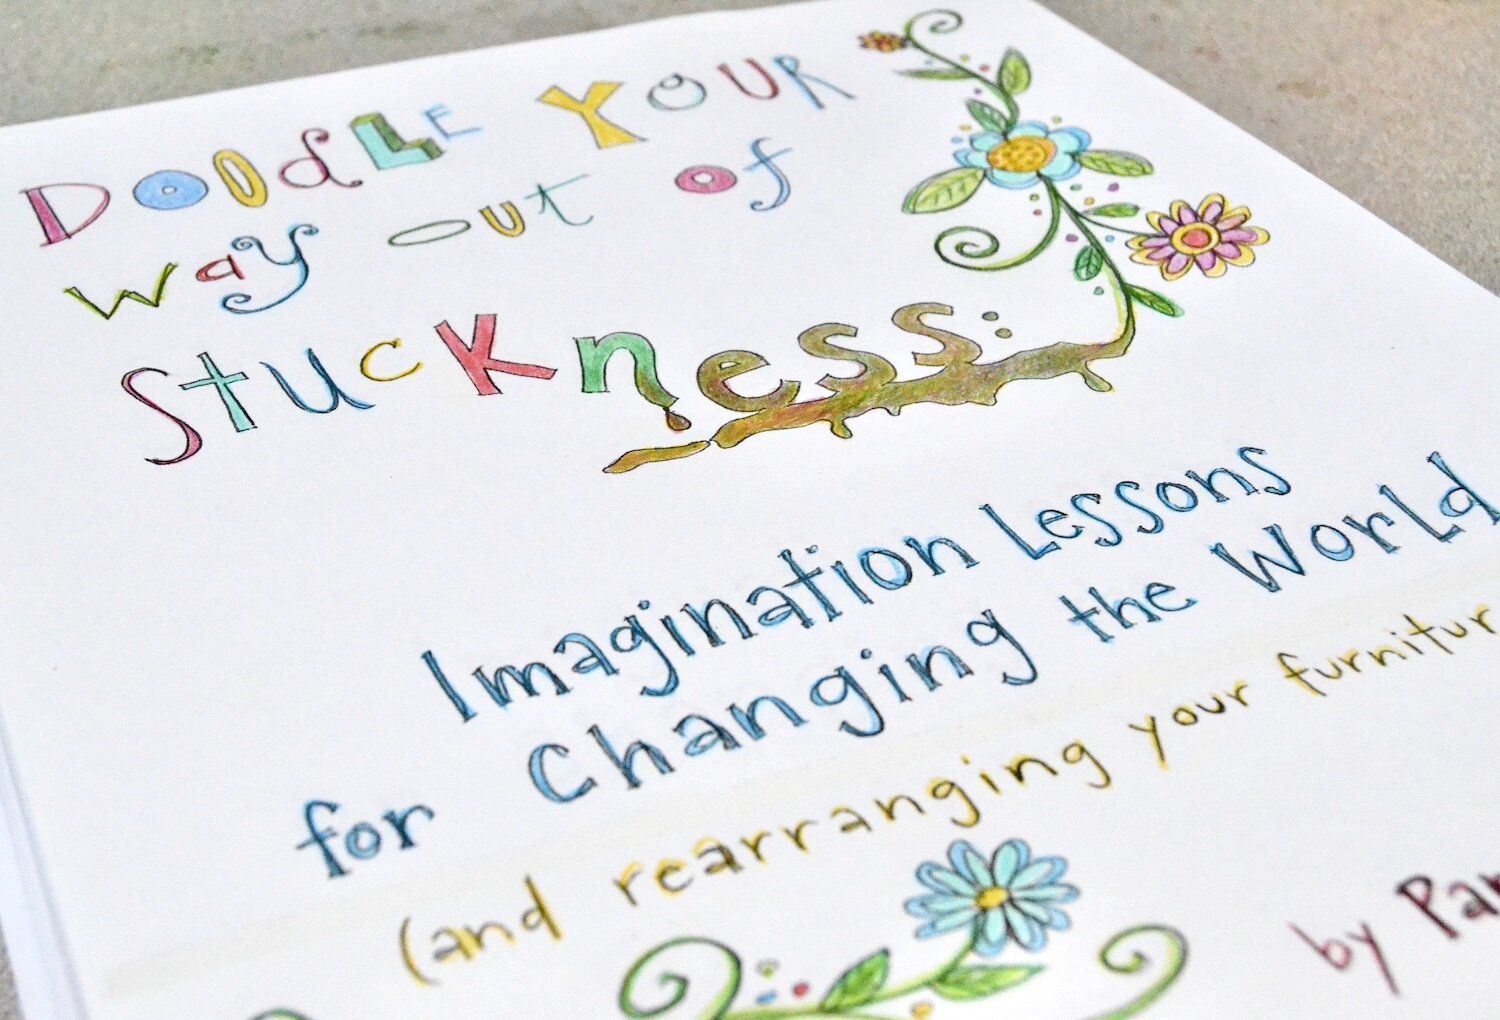 DOODLE YOUR
way out of
Stuckness:
Imagination Lessons
for Changing the World
(and rearranging your furnitur
by Pam